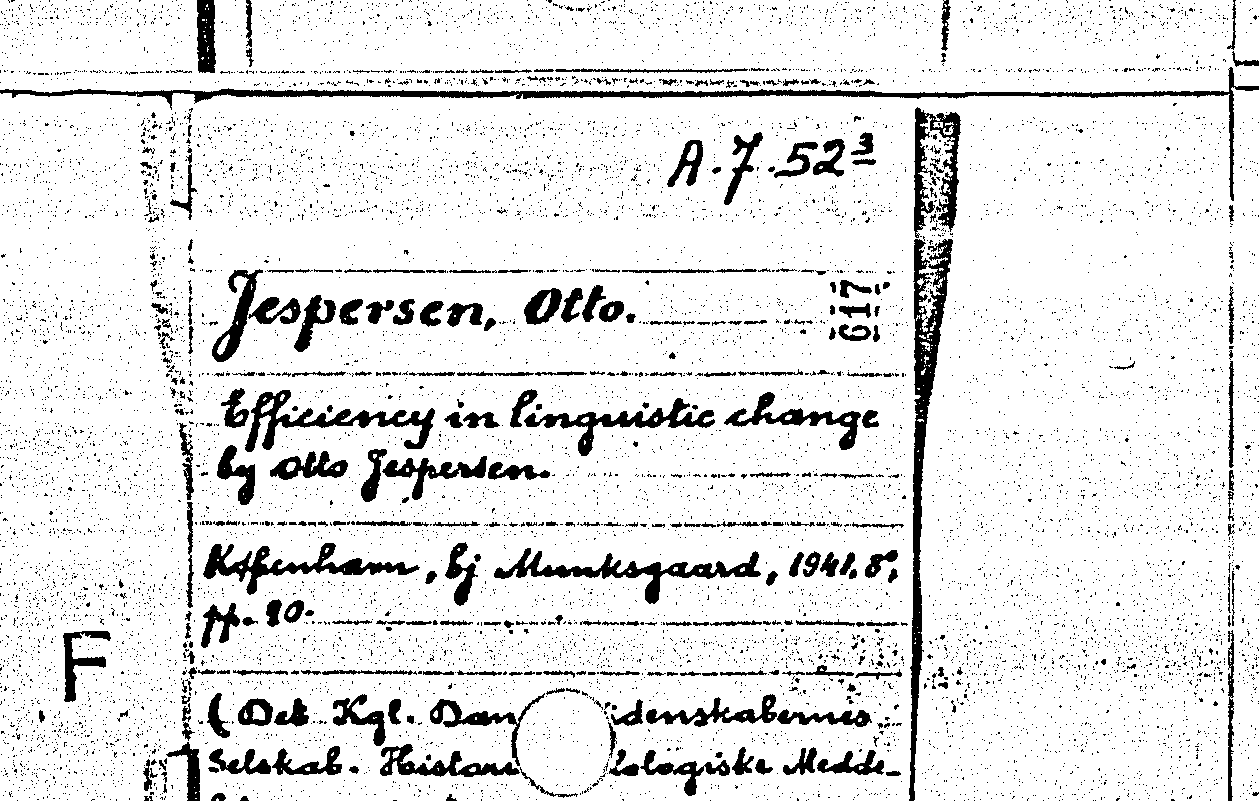 A.7.52³
Jespersen, Otto.
617
Efficiency in linguistic change
by Otto Jespersen.
København, bj Munksgaard, 1941, 8°,
pp. 90.
F
(Det Kgl. Dan denskabernes
Selskab. Histori lologiske Medde-